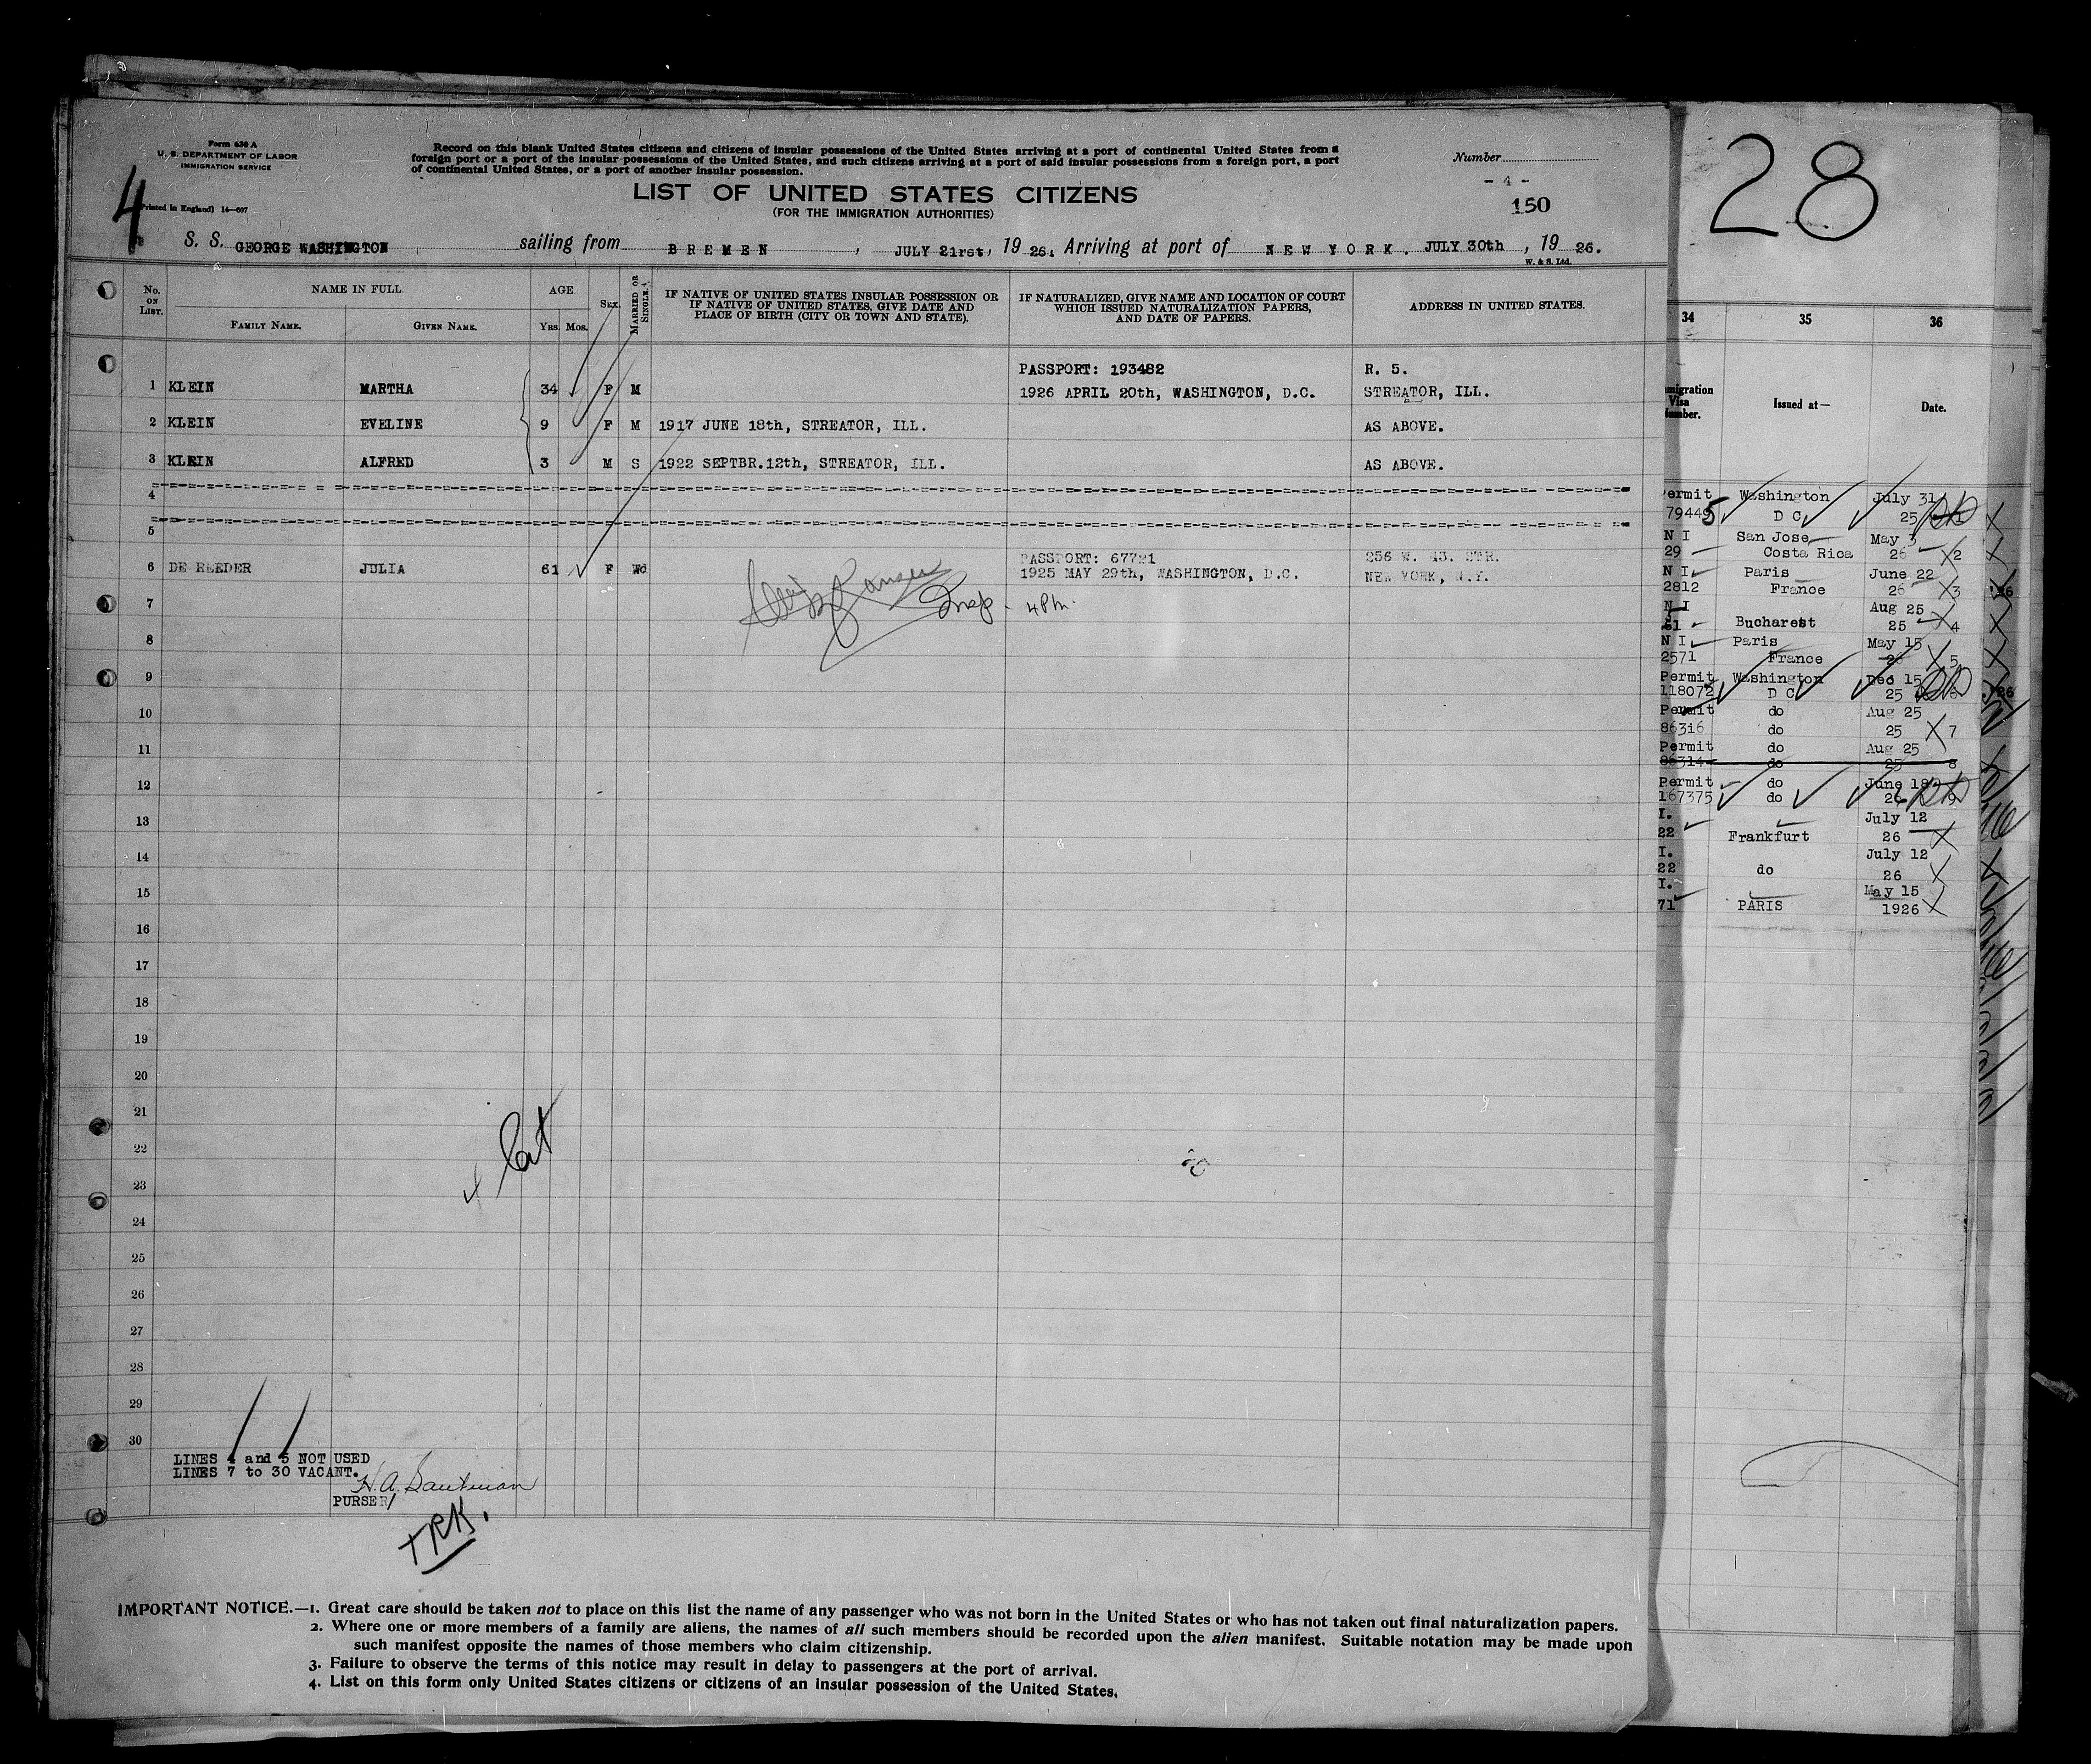 Form 630 A
U. S. DEPARTMENT OF LABOR
IMMIGRATION SERVICE
(Printed in England) 14—607
4
Record on this blank United States citizens and citizens of insular possessions of the United States arriving at a port of continental United States from a
foreign port or a port of the insular possessions of the United States, and such citizens arriving at a port of said insular possessions from a foreign port, a port
of continental United States, or a port of another insular possession.
LIST OF UNITED STATES CITIZENS
(FOR THE IMMIGRATION AUTHORITIES)
Number
- 4 -
150
S. S. GEORGE WASHINGTON sailing from BREMEN, JULY 21rst, 19 26. Arriving at port of NEW YORK. JULY 30th, 19 26.
W. & S. Ltd.
No. ON LIST. NAME IN FULL. FAMILY NAME. GIVEN NAME. AGE Yrs. Mos. Sex. MARRIED OR SINGLE.
IF NATIVE OF UNITED STATES INSULAR POSSESSION OR
IF NATIVE OF UNITED STATES, GIVE DATE AND
PLACE OF BIRTH (CITY OR TOWN AND STATE).
IF NATURALIZED, GIVE NAME AND LOCATION OF COURT
WHICH ISSUED NATURALIZATION PAPERS,
AND DATE OF PAPERS.
ADDRESS IN UNITED STATES.
PASSPORT: 193482 R. 5.
1 KLEIN MARTHA 34 F M 1926 APRIL 20th, WASHINGTON, D.C. STREATOR, ILL.
2 KLEIN EVELINE 9 F M 1917 JUNE 18th, STREATOR, ILL. AS ABOVE.
3 KLEIN ALFRED 3 M S 1922 SEPTBR.12th, STREATOR, ILL. AS ABOVE.
4
5
PASSPORT: 67721 256 W. 43. STR.
6 DE REEDER JULIA 61 F Wd 1925 MAY 29th, WASHINGTON, D.C. NEW YORK, N.Y.
7 Insp. 4 Pm.
8
9
10
11
12
13
14
15
16
17
18
19
20
21
22
23
24
25
26
27
28
29
30
LINES 4 and 5 NOT USED
LINES 7 to 30 VACANT.
PURSER
IMPORTANT NOTICE.—1. Great care should be taken not to place on this list the name of any passenger who was not born in the United States or who has not taken out final naturalization papers.
2. Where one or more members of a family are aliens, the names of all such members should be recorded upon the alien manifest. Suitable notation may be made upon
such manifest opposite the names of those members who claim citizenship.
3. Failure to observe the terms of this notice may result in delay to passengers at the port of arrival.
4. List on this form only United States citizens or citizens of an insular possession of the United States.
28
34 35 36
Visa
Issued at— Date.
Permit Washington July 31
79445 D C 25
N I San Jose May 3
29 Costa Rica 26 2
N I Paris June 22
2812 France 26 3
N I Aug 25
Bucharest 25 4
N I Paris May 15
2571 France 26 5
Permit Washington Dec 15
118072 D C 25
Permit do Aug 25
86316 do 25 7
Permit do Aug 25
86314 do 25 8
Permit do June 18
167375 do 26 9
I. July 12
22 Frankfurt 26
I. July 12
22 do 26
I. May 15
71 PARIS 1926